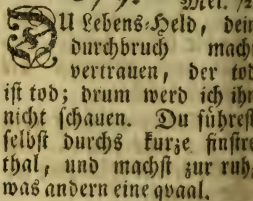 Mel. 72
DU Lebens-Held, dein
durchbruch mach
vertrauen, der tod
ist tod; drum werd ich ihn
nicht schauen. Du führest
selbst durchs kurze finstre
thal, und machst zur ruh,
was andern eine qvaal.